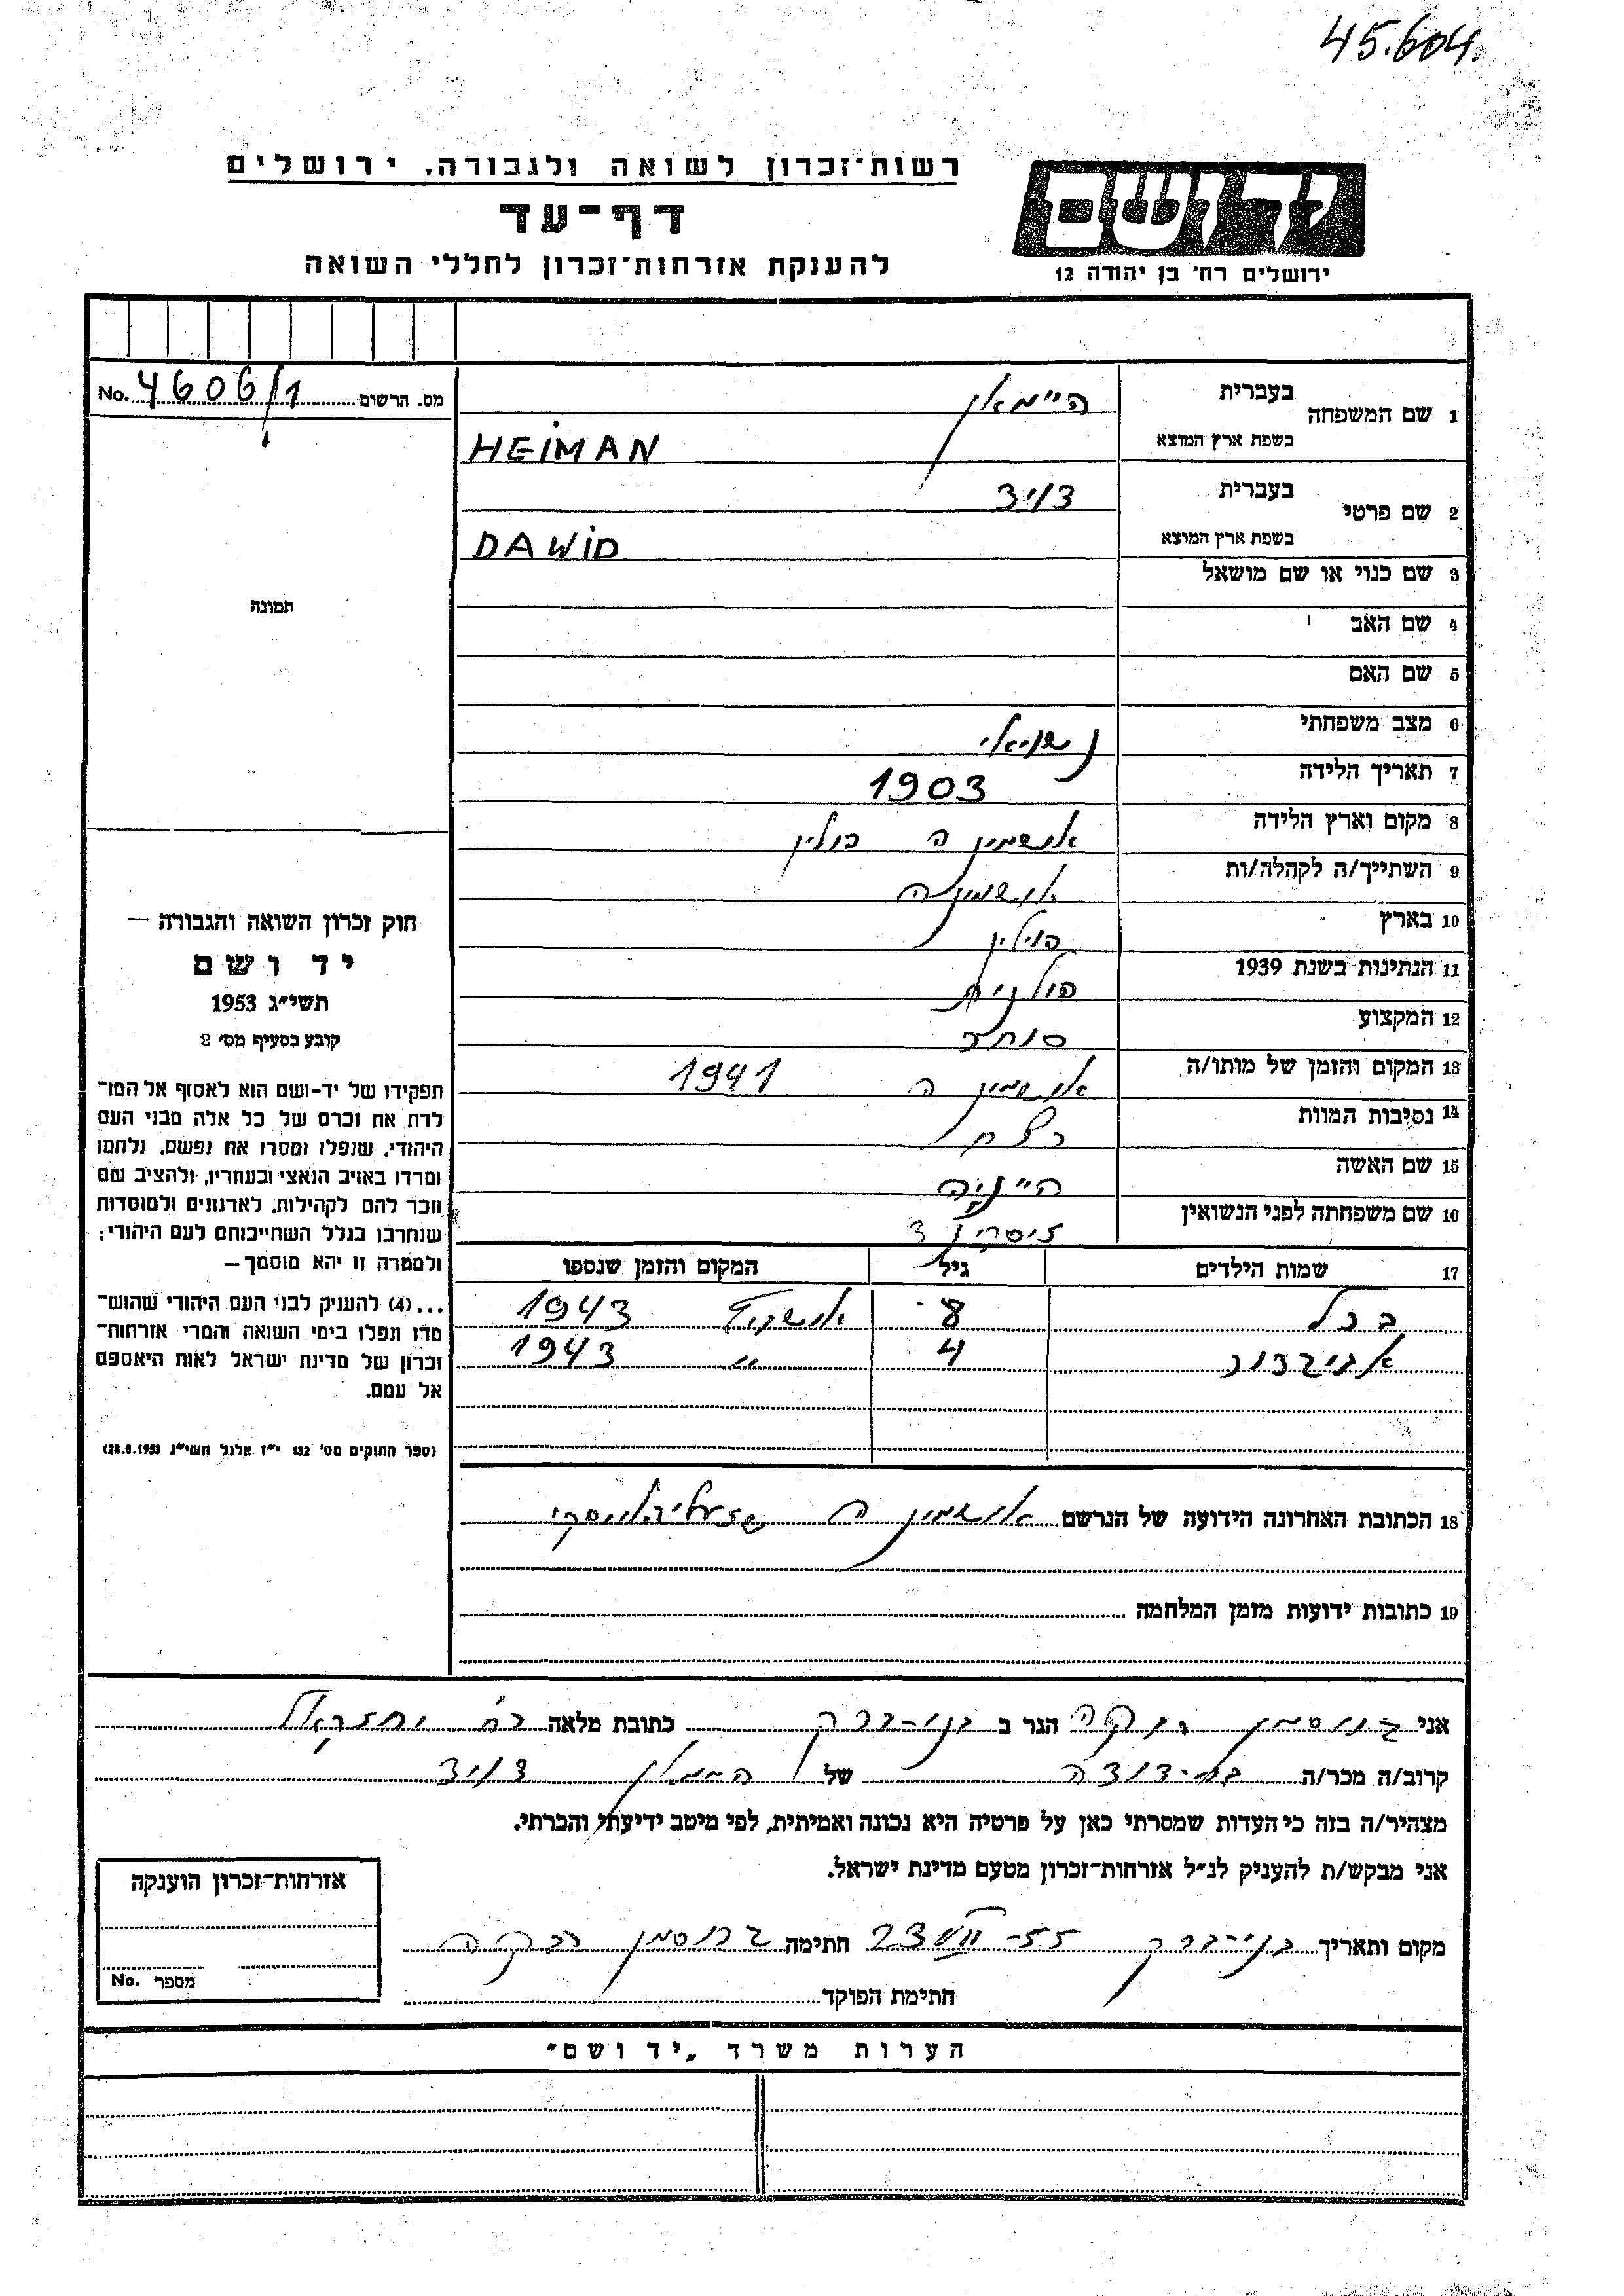 45.604.
רשות־זכרון לשואה ולגבורה, ירושלים
דף־עד
להענקת אזרחות־זכרון לחללי השואה
יד ושם
ירושלים רח׳ בן יהודה 12
מס. הרשום 4606/1 No.
1 שם המשפחה
בעברית היימאן
בשפת ארץ המוצא HEIMAN
2 שם פרטי
בעברית דויד
בשפת ארץ המוצא DAWID
3 שם כנוי או שם מושאל
4 שם האב
5 שם האם
6 מצב משפחתי נשואי
7 תאריך הלידה 1903
8 מקום וארץ הלידה אושמינה פולין
9 השתייך/ה לקהלה/ות אושמינה
10 בארץ פולין
11 הנתינות בשנת 1939 פולנית
12 המקצוע סוחר
13 המקום והזמן של מותו/ה אושמינה 1941
14 נסיבות המוות נצח
15 שם האשה היניה
16 שם משפחתה לפני הנשואין
17 שמות הילדים גיל המקום והזמן שנספו
8 1943
4 " 1943
18 הכתובת האחרונה הידועה של הנרשם אושמינה
19 כתובות ידועות מזמן המלחמה
תמונה
חוק זכרון השואה והגבורה —
יד ושם
תשי״ג 1953
קובע בסעיף מס׳ 2
תפקידו של יד-ושם הוא לאסוף אל המו־
לדת את זכרם של כל אלה מבני העם
היהודי, שנפלו ומסרו את נפשם, נלחמו
ומרדו באויב הנאצי ובעוזריו, ולהציב שם
וזכר להם לקהילות, לארגונים ולמוסדות
שנחרבו בגלל השתייכותם לעם היהודי;
ולמטרה זו יהא מוסמך —
...(4) להעניק לבני העם היהודי שהוש־
מדו ונפלו בימי השואה והמרי אזרחות־
זכרון של מדינת ישראל לאות היאספם
אל עמם.
(ספר החוקים מס׳ 132 י״ז אלול תשי״ג 28.8.1953)
אני גרוסמן רבקה הגר ב בני-ברק כתובת מלאה רח׳
קרוב/ה מכר/ה בת-דודה של היימאן דויד
מצהיר/ה בזה כי העדות שמסרתי כאן על פרטיה היא נכונה ואמיתית, לפי מיטב ידיעתי והכרתי.
אני מבקש/ת להעניק לנ״ל אזרחות־זכרון מטעם מדינת ישראל.
מקום ותאריך בני-ברק 23 VII 55- חתימה גרוסמן רבקה
חתימת הפוקד
אזרחות־זכרון הוענקה
מספר No.
הערות משרד „יד ושם״